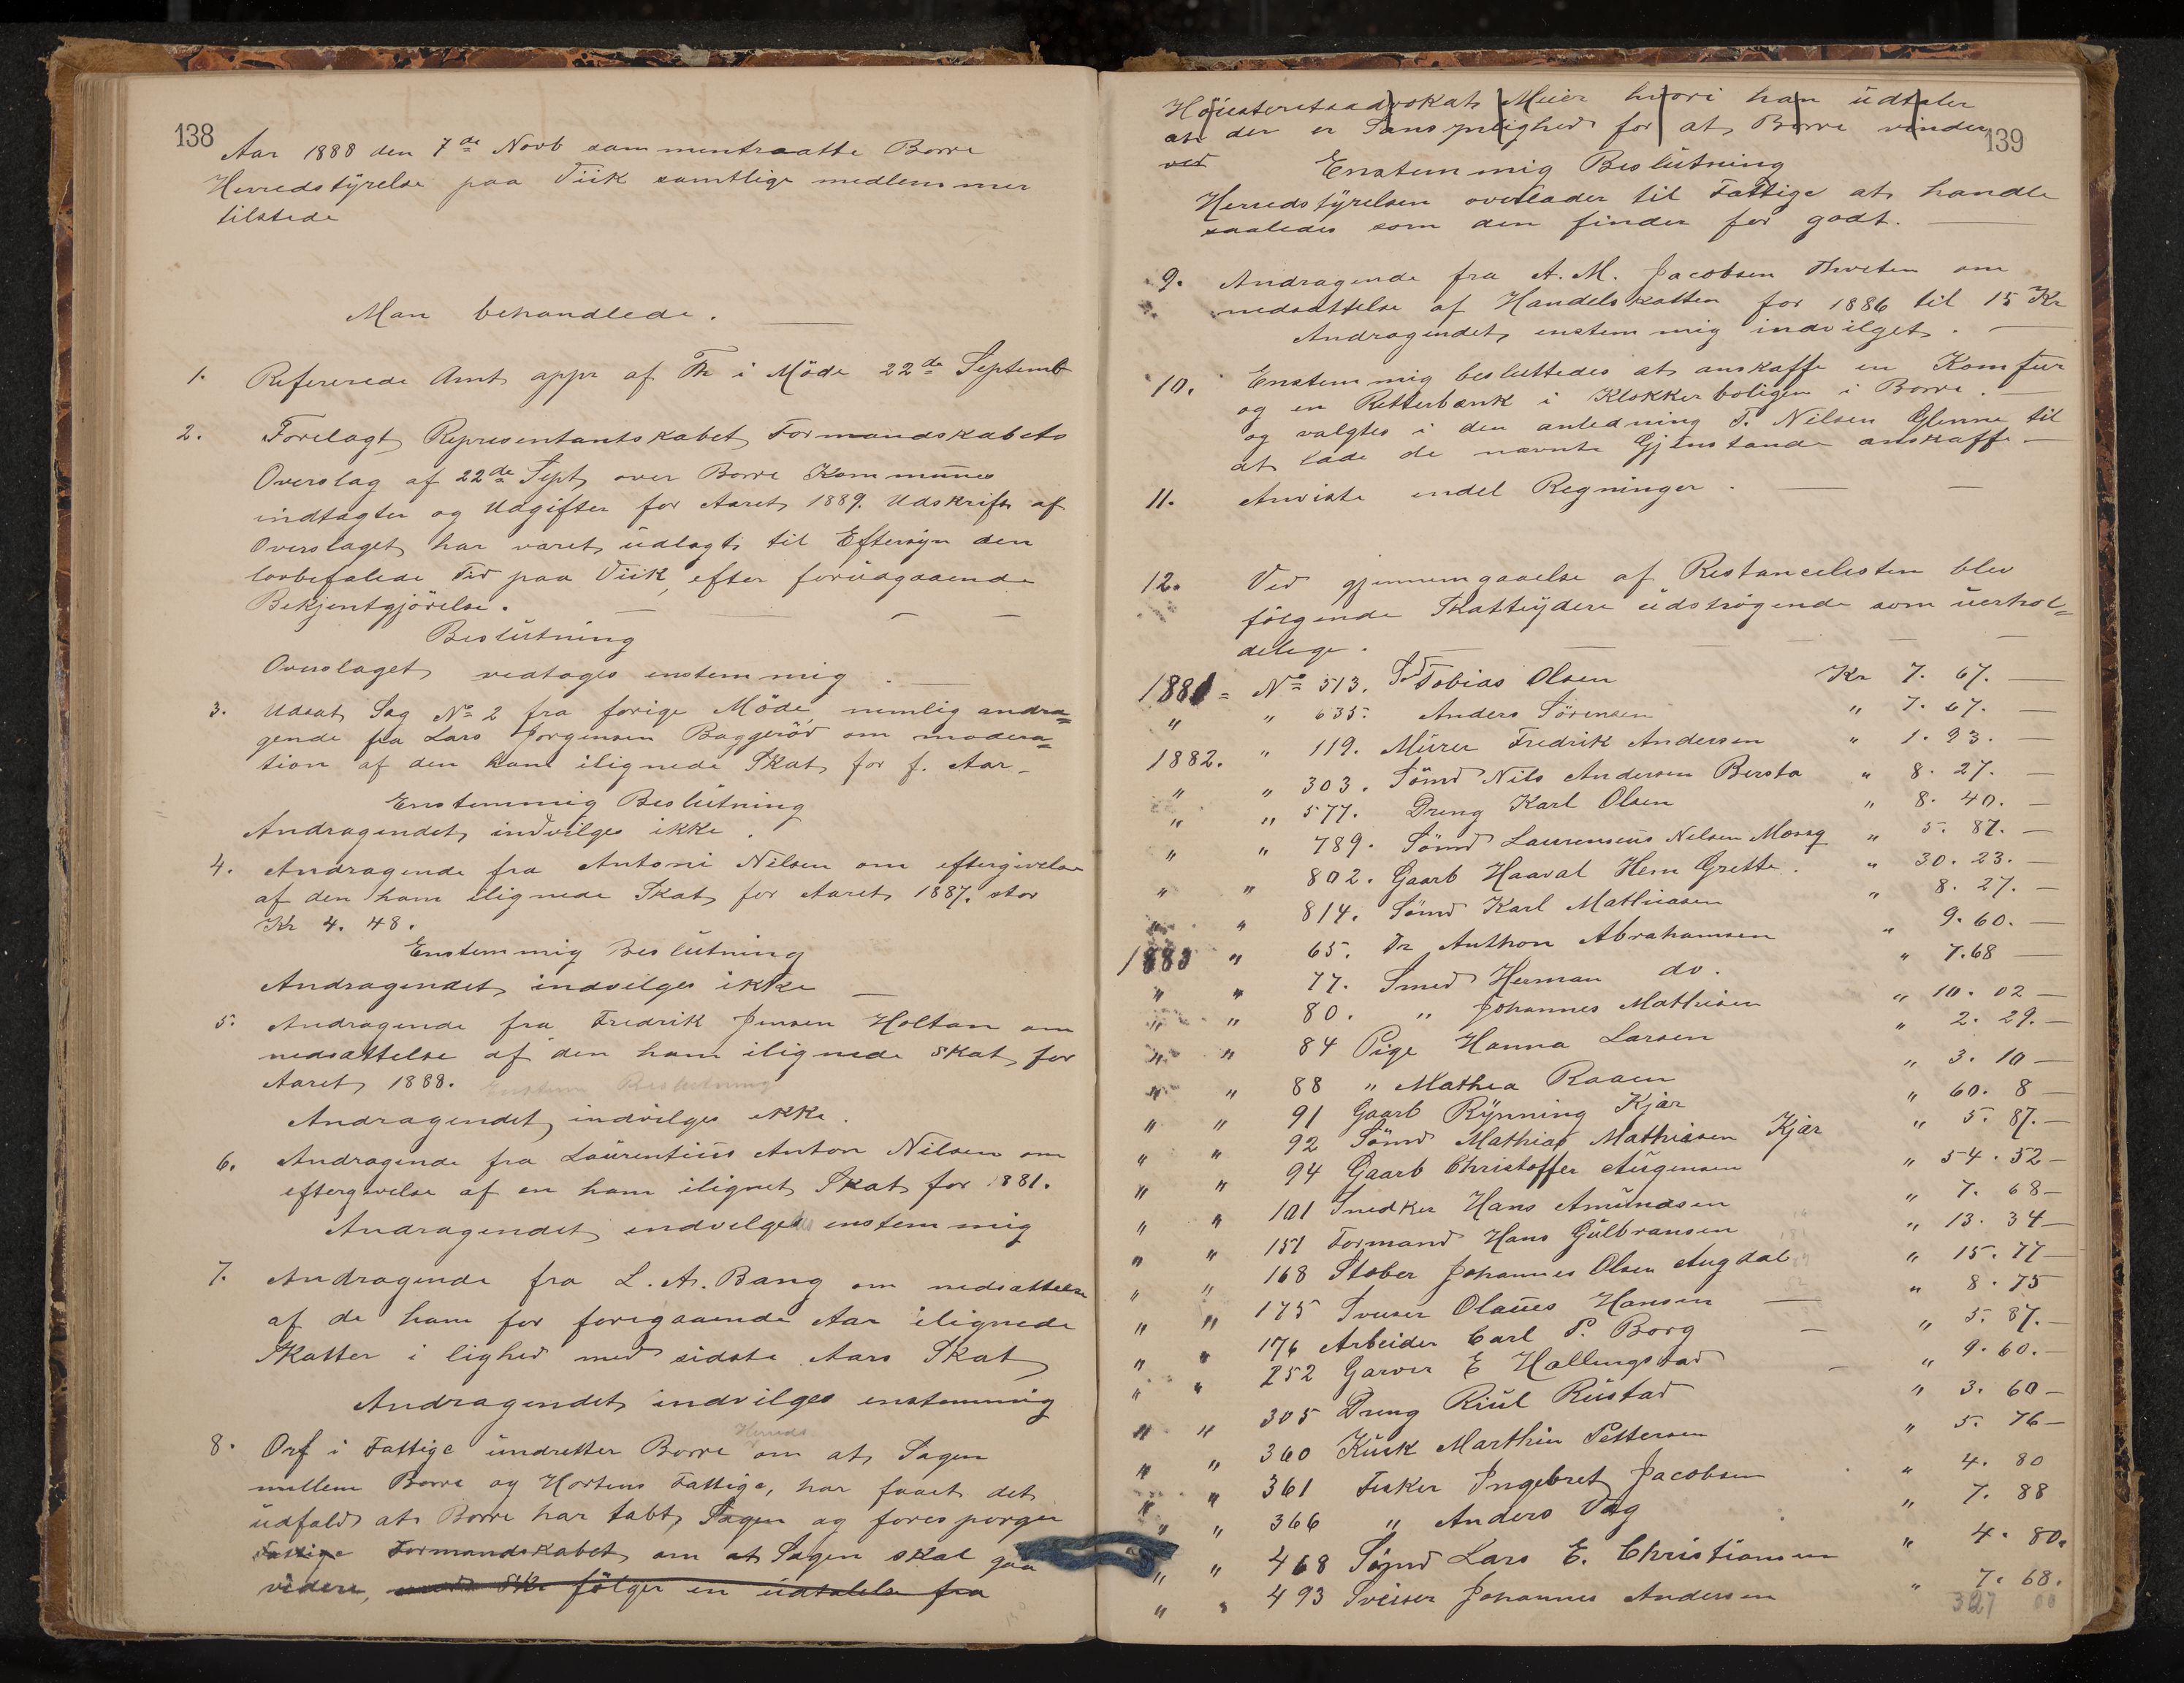 138
Aar 1888 den 7de Novb sammentraatte Borre
Herredstyrelse paa Viik samtlige medlemmer
tilstede
Man behandlede.
1. Refererede Amts appr af Fk i Möde 22de Septemb
2. Forelagt Representantskabet Formandskabets
Overslag af 22de Sept over Borre Kommunes
indtægter og Udgifter for Aaret 1889. Udskrift af
Overslaget har været udlagt til Eftersyn den
lovbefalede Tid paa Viik, efter forudgaaende
Bekjentgjörelse.
Beslutning
Overslaget vedtages enstemmig.
3. Udsat Sag No 2 fra forige Möde nemlig andra=
gende fra Lars Jörgensen Baggeröd om modera=
tion af den ham ilignede Skat for f. Aar
Enstemmig Beslutning
Andragendet indvilges ikke.
4. Andragende fra Antoni Nilsen om eftergivelse
af den ham ilignede Skat for Aaret 1887. stor
Kr 4. 48.
Enstemmig Beslutning
Andragendet indvilges ikke
5. Andragende fra Fredrik Jensen Holtan om
nedsættelse af den ham ilignede Skat for
Aaret 1888. Enstem Beslutning
Andragendet indvilges ikke.
6. Andragende fra Laurentius Anton Nilsen om
eftergivelse af en ham ilignet Skat for 1881.
Andragendet indvilges enstemmig
7. Andragende fra L. A. Bang om nedsættelse
af de ham for foregaaende Aar ilignede
Skatter i lighed med sidste Aars Skat
Andragendet indvilges enstemmig
Herreds
8. Orf i Fattige undretter Borre om at Sagen
mellem Borre og Hortens Fattige, har faaet det
udfald at Borre har tabt Sagen og foresporger
Fattige Formandskabet om at Sagen skal gaa
videre, fölger en udtalelse fra
139
Höiesteretsadvokat Meier hvori han udtaler
at der er Sansynlighed for at Borre vinder
ved
Enstemmig Beslutning
Herredstyrelsen overlader til Fattige at handle
saaledes som den finder for godt.
9. Andragende fra A. M. Jacobsen Thveten om
nedsættelse af Handelskatten for 1886 til 15 Kr
Andragendet enstemmig indvilget.
10. Enstemmig besluttedes at anskaffe en Komfur
og en Retterbænk i Klokkerboligen i Borre.
og valgtes i den anledning T. Nilsen Glenne til
at lade de nævnte Gjenstande anskaffe
11. Anviste endel Regninger.
12. Ved gjennemgaaelse af Restancelisten blev
fölgende Skatteydere udströgende som uerhol=
delige.
1881 = No 513. Tobias Olsen Kr 7. 67.
" " 635. Anders Sörensen " 7. 67.
1882. " 119. Murer Fredrik Andersen " 1. 93.
" " 303. Sömd Nils Andersen Bersta " 8. 27.
" " 577. Dreng Karl Olsen " 8. 40.
" " 789. Sömd Laurensius Nelsen " 5. 87.
" " 802. Gaarb Haaval Hem Grette. " 30. 23.
" " 814. Sömd Karl Mathiasen " 8. 27.
1883 " 65. Anthon Abrahamsen " 9. 60.
" " 77. Smed Herman do. " 7.68
" " 80. " Johannes Mathisen " 10. 02
" " 84 Pige Hanna Larsen " 2. 29.
" " 88 " Mathea Raaen " 3. 10
" " 91 Gaarb Rynning Kjær " 60. 8
" " 92 Sömd Mathias Mathiasen Kjær " 5. 87.
" " 94 Gaarb Christoffer Augensen " 54. 52
" " 101 Snedker Hans Amundsen " 7. 68
" " 151 Formand Hans Gulbransen " 13. 34
" " 168 Stöber Johannes Olsen Augdal " 15. 77
" " 175 Sveiser Olaues Hansen " 8. 75
" " 176 Arbeider Carl P. Borg " 5. 87.
" " 252 Garver E Hallingstad " 9. 60.
" " 305 Dreng Riul Rustad " 3. 60
" " 360 Kusk Marthin Pettersen " 5. 76
" " 361 Fisker Ingebret Jacobsen " 4. 80
" " 366 " Anders Vag " 7. 88
" " 468 Sömd Lars E. Christiansen " 4. 80.
" " 493 Sveiser Johannes Andersen " 7. 68.
327